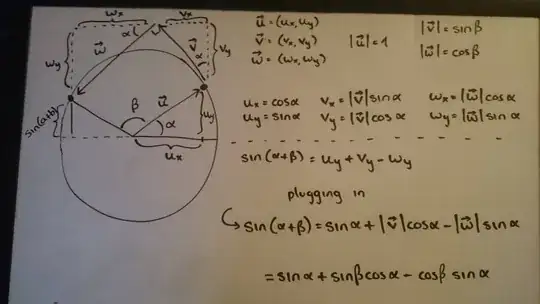 wx vx
α
w⃗ v⃗
wy vy
α
sin(α+β)
β u⃗
α uy
ux
u⃗ = (ux, uy)
v⃗ = (vx, vy) |u⃗| = 1
w⃗ = (wx, wy)
|v⃗| = sinβ
|w⃗| = cosβ
ux = cosα vx = |v⃗| sinα wx = |w⃗| cosα
uy = sinα vy = |v⃗| cosα wy = |w⃗| sinα
sin(α+β) = uy + vy - wy
plugging in
sin(α+β) = sinα + |v⃗| cosα - |w⃗| sinα
= sinα + sinβ cosα - cosβ sinα